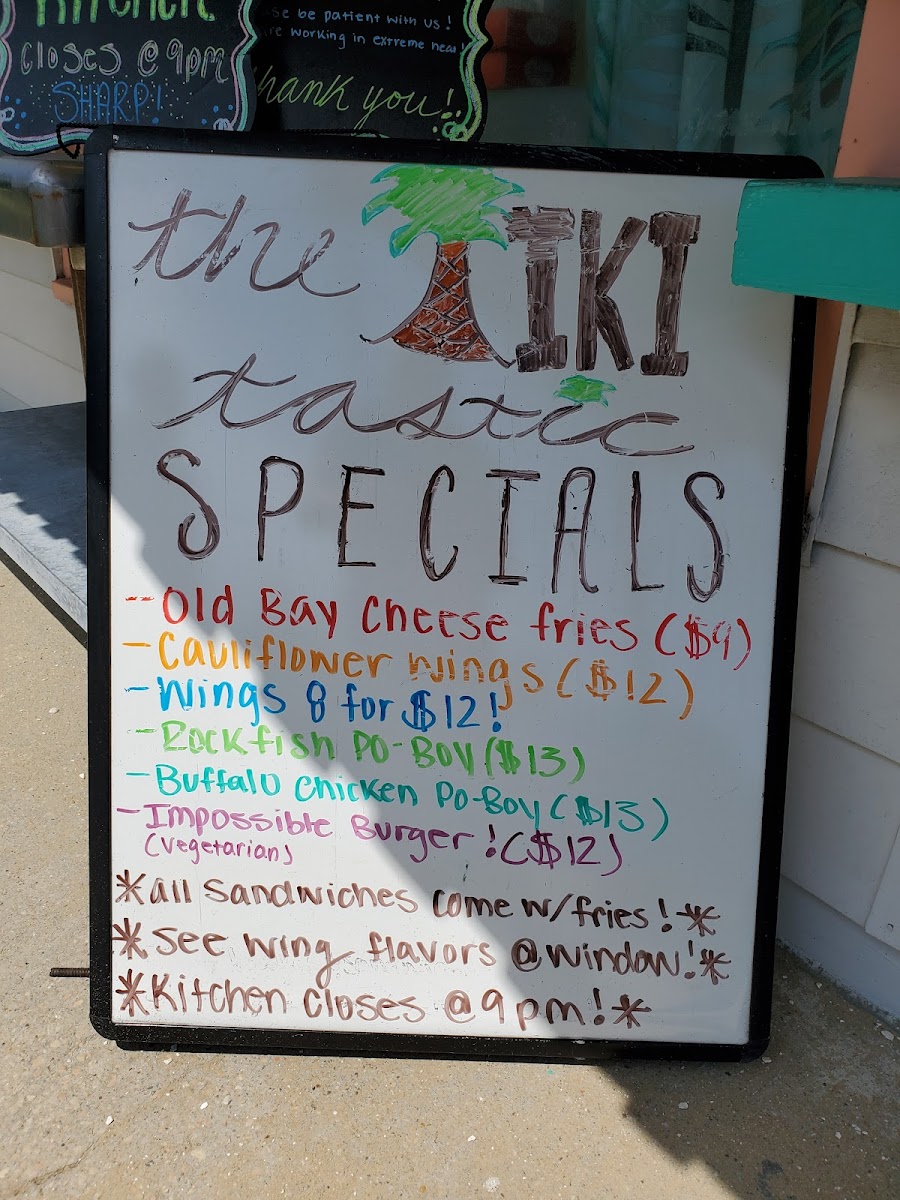 Kitchen
closes @ 9pm
SHARP!
be patient with us!
are working in extreme heat!
Thank you!
the TIKI
tastic
SPECIALS
- Old Bay Cheese fries ($9)
- Cauliflower wings ($12)
- Wings 8 for $12!
- Rockfish Po-Boy ($13)
- Buffalo Chicken Po-Boy ($13)
- Impossible Burger! ($12)
(vegetarian)
*all sandwiches come w/fries!*
*see wing flavors @window!*
*Kitchen closes @ 9pm!*